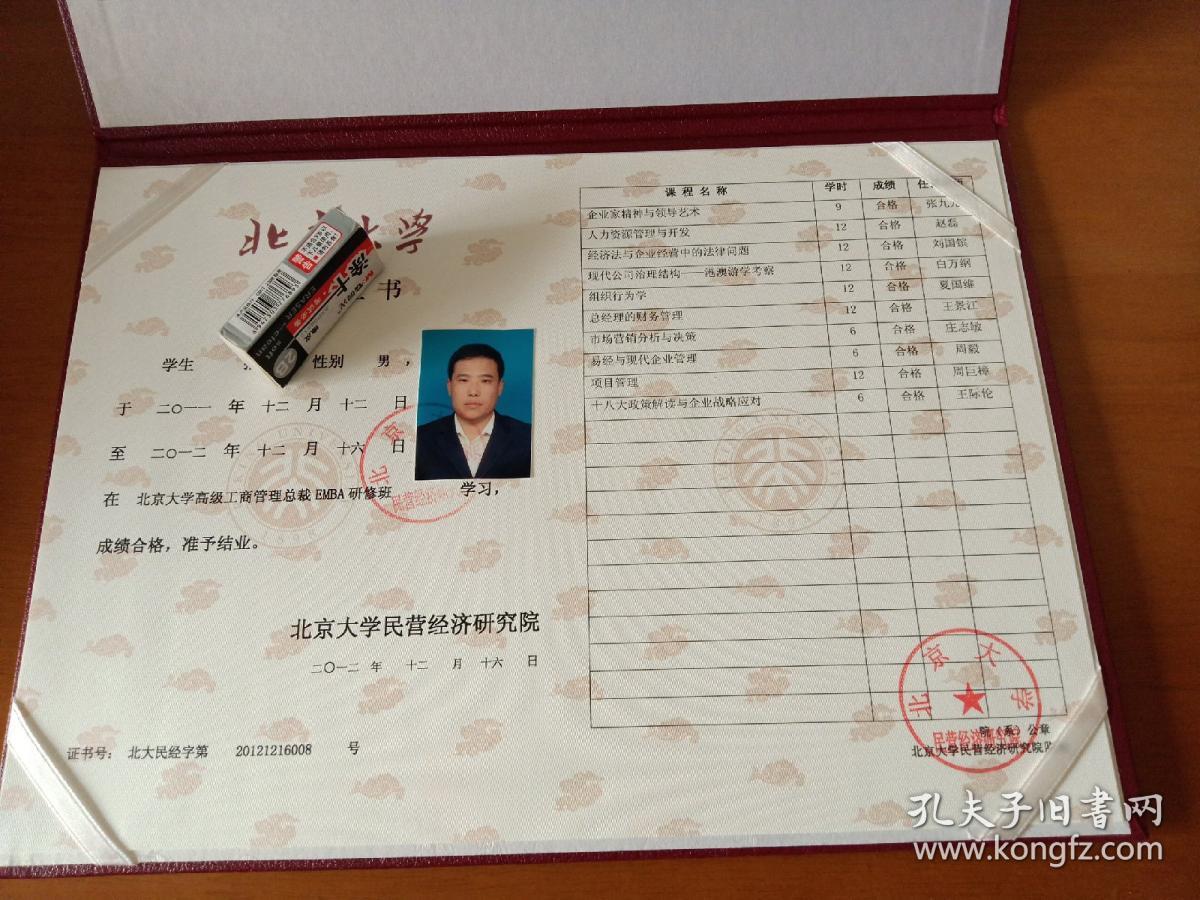 北 大学
书
学生 性别 男，
于 二〇一一 年 十二 月 十二 日
至 二〇一二 年 十二 月 十六 日
在 北京大学高级工商管理总裁EMBA研修班 学习，
成绩合格，准予结业。
北京大学民营经济研究院
二〇一二 年 十二 月 十六 日
证书号： 北大民经字第 20121216008 号
涂卡
ERASER
考试必备
橡皮
soft
2B
课 程 名 称 学时 成绩 任
企业家精神与领导艺术 9 合格 张九
人力资源管理与开发 12 合格 赵磊
经济法与企业经营中的法律问题 12 合格 刘国镔
现代公司治理结构——港澳游学考察 12 合格 白万纲
组织行为学 12 合格 夏国维
总经理的财务管理 12 合格 王景江
市场营销分析与决策 6 合格 庄志敏
易经与现代企业管理 6 合格 周毅
项目管理 12 合格 周巨樟
十八大政策解读与企业战略应对 6 合格 王际伦
北京大学
民营经济研究院
院（系）公章
北京大学民营经济研究院
北京
民营经济
1898
孔夫子旧书网
www.kongfz.com